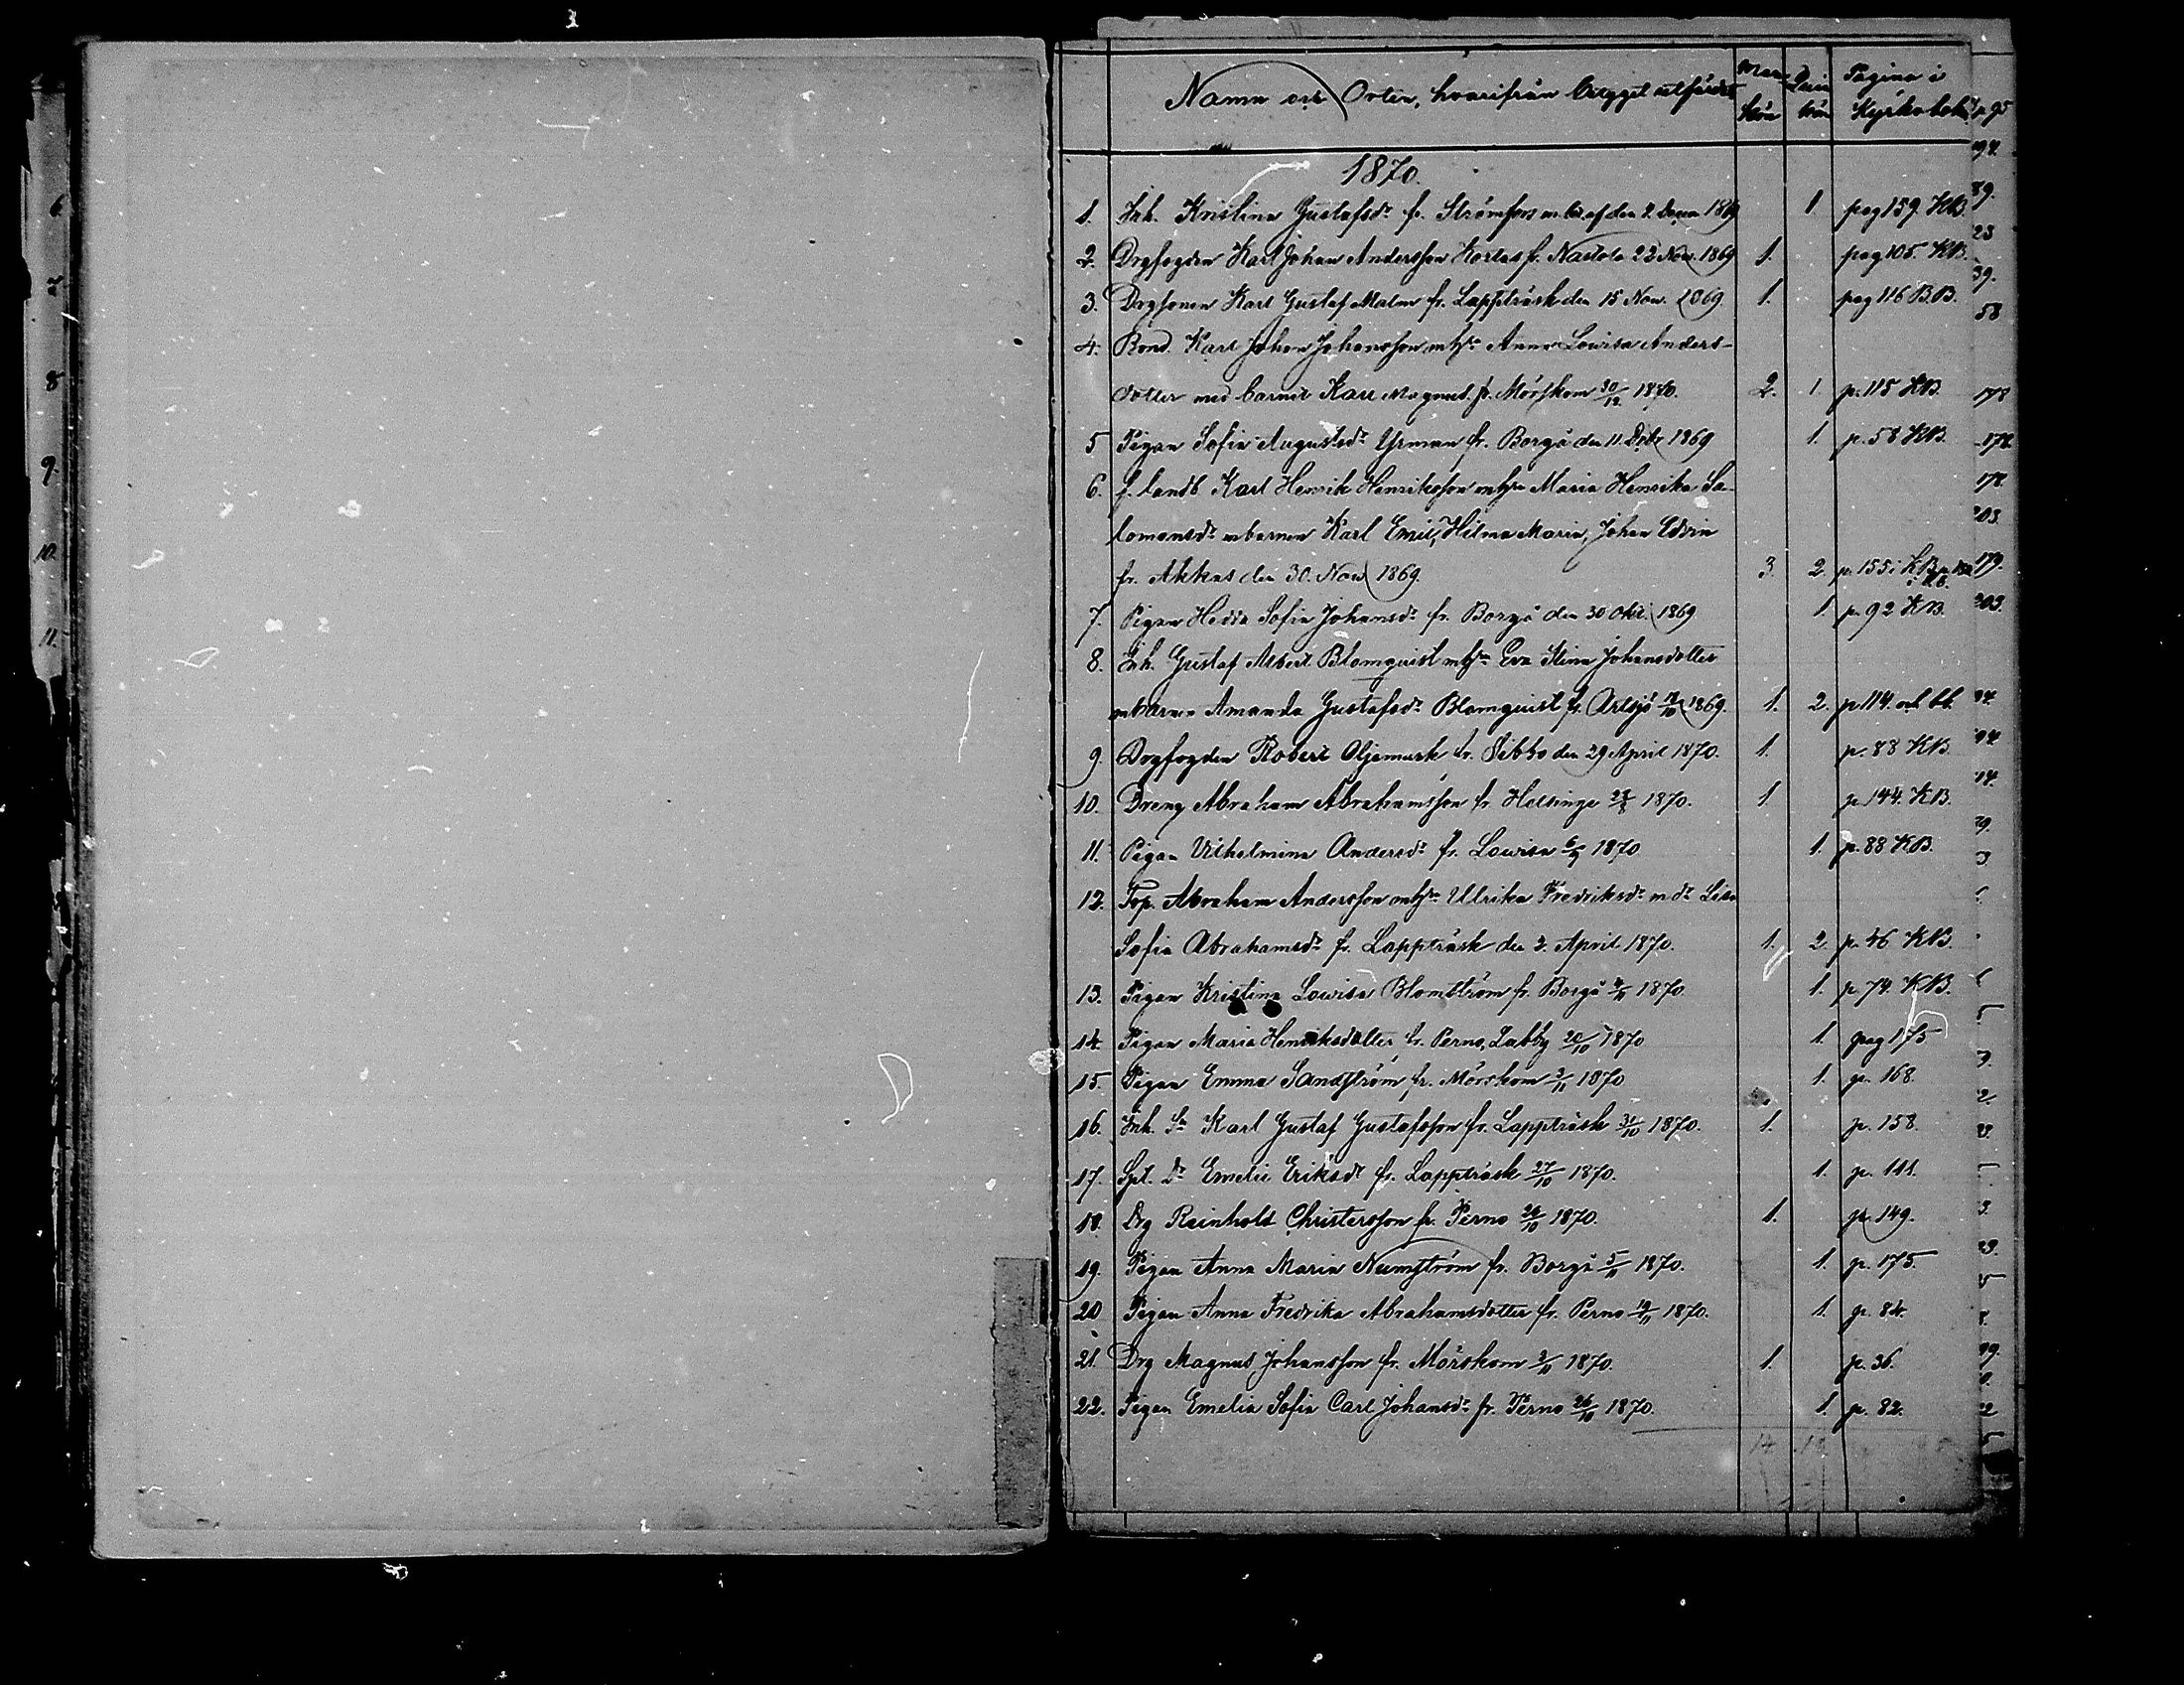 Namn och Orten, hvarifrån betyget utfärdat Man kön Qvin kön Pagina i Kyrkobok.
1870.
1. Inh. Kristina Gustafsdr fr. Strömfors m. bet. af den 2. Decem 1869 1 pag 159. KB.
2. Drgfogden Karl Johan Andersson Kortas fr. Nastola 22 Nov. 1869 1. pag 105. KB.
3. Drgsonen Karl Gustaf Malm fr. Lappträsk den 15 Nov. 1869. 1. pag 116 B.B.
4. Bond. Karl Johan Johansson mhu Anna Lovisa Anders-
dotter med barnet Karl Magnus fr. Mörskom 30/12. 1870. 2. 1. p. 115 KB.
5 Pigan Sofia Augustsdr Yrman fr. Borgå den 11. Octr 1869 1. p. 58 KB.
6. f. landb. Karl Henrik Henriksson mhu Maria Henrika Sa-
lomonsdr m barnen Karl Emil, Hilma Maria, Johan Edvin
fr. Askas den 30. Nov 1869. 3. 2. p. 155 i KB.
7. Pigan Hedda Sofia Johansdr fr. Borgå den 30 Okt. 1869. 1 p. 92 KB.
8. Inh. Gustaf Albert Blomquist mhu Eva Stina Johansdotter
m barnen Amanda Gustafsdr Blomquist fr. Artsjö 1869. 1. 2. p 114. och bb.
9. Drgfogden Robert Oljemark fr. Sibbo den 29 April 1870. 1. p. 88 KB.
10. Dreng Abraham Abrahamsson fr. Helsinge 1870. 1. p. 144. KB.
11. Pigan Vilhelmina Andersdr fr. Lovisa 1870 1. p. 88 KB.
12. Torp. Abraham Andersson mhu Ulrika Fredriksdr m dr Lisa
Sofia Abrahamsdr fr. Lappträsk den 2. April 1870. 1. 2. p. 46 KB.
13. Pigan Kristina Lovisa Blomström fr. Borgå 1870 1. p. 74. KB.
14. Pigan Maria Henriksdotter fr. Perno, Labby 20/10 1870 1. pag 175
15. Pigan Emma Sandström fr. Mörskom 3/11 1870 1. p. 168.
16. Inh. Sn Karl Gustaf Gustafsson fr. Lappträsk 31/10 1870. 1. p. 158.
17. Spl. Dr Emelie Eriksdr fr. Lappträsk 27/10 1870. 1. p. 111.
18. Drg Reinhold Christersson fr. Perno 26/10 1870. 1. p. 149.
19. Pigan Anna Maria Numström fr. Borgå 5/11 1870. 1. p. 175.
20 Pigan Anna Fredrika Abrahamsdotter fr. Perno 19/11 1870. 1. p. 84.
21. Drg Magnus Johansson fr. Mörskom 3/11 1870. 1. p. 36.
22. Pigan Emelia Sofia Carl Johansdr fr. Perno 26/10 1870. 1. p. 82.
14